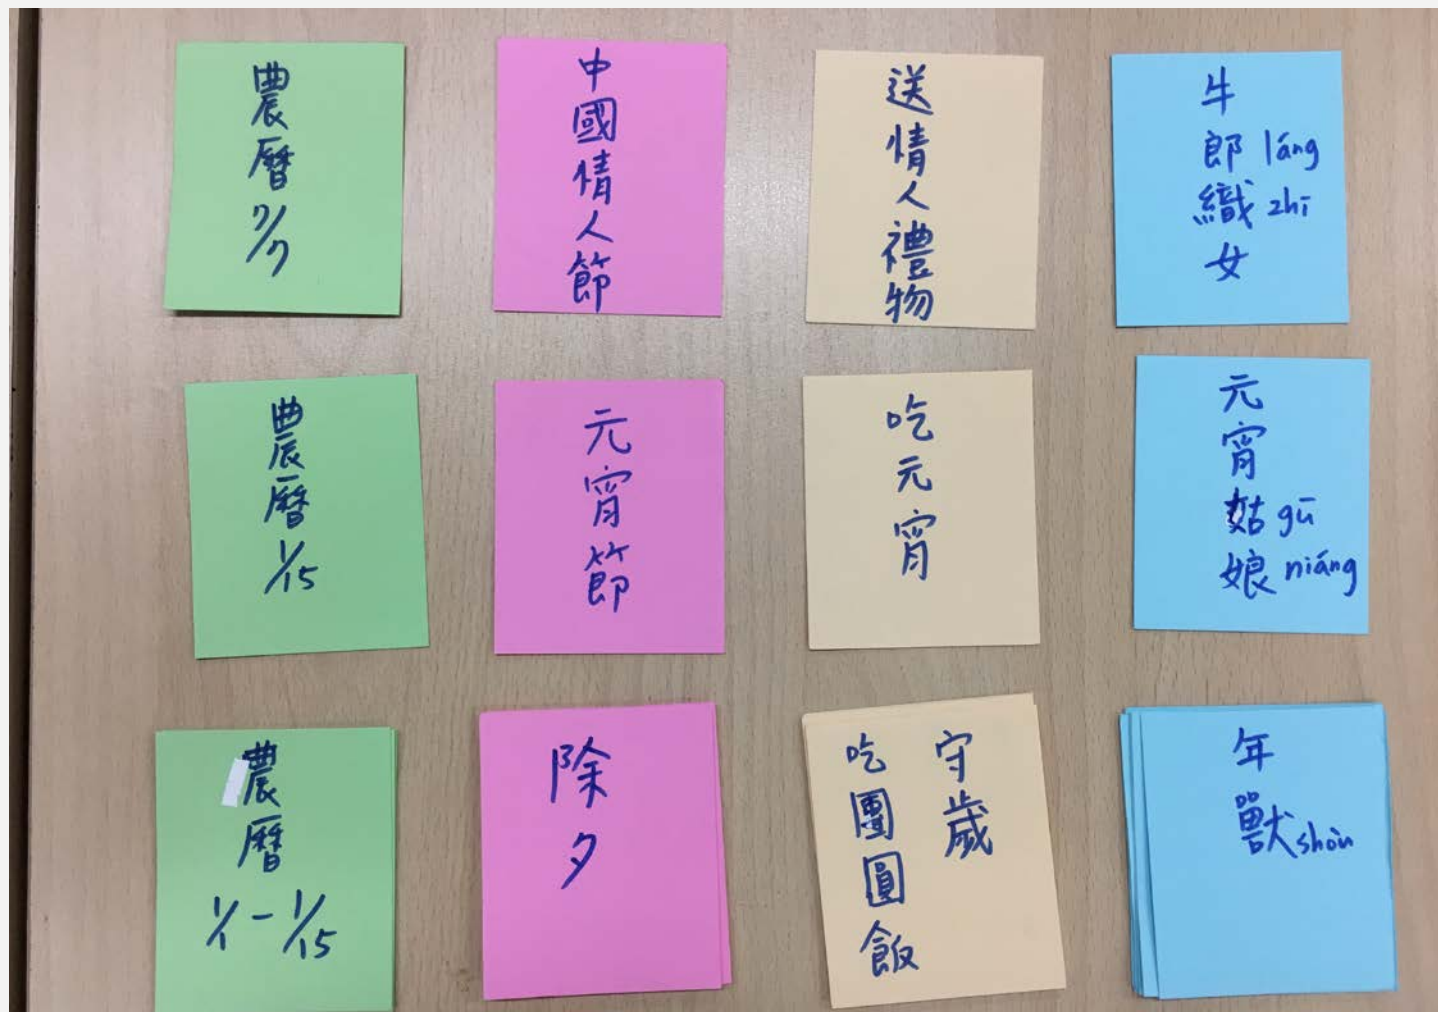 農曆7/7
中國情人節
送情人禮物
牛郎 láng 織 zhī 女
農曆1/15
元宵節
吃元宵
元宵姑 gū 娘 niáng
農曆1/1-1/15
除夕
守歲
吃團圓飯
年獸 shòu